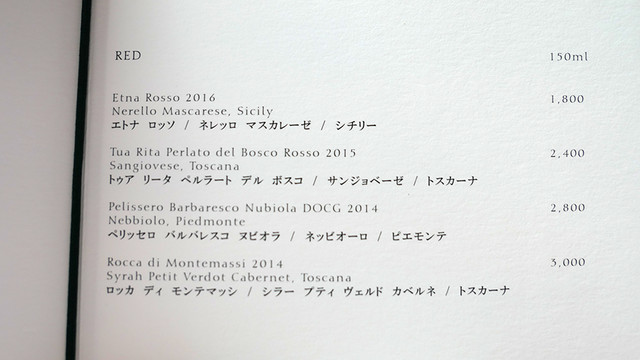 RED 150ml
Etna Rosso 2016 1,800
Nerello Mascarese, Sicily
エトナ ロッソ / ネレッロ マスカレーゼ / シチリー
Tua Rita Perlato del Bosco Rosso 2015 2,400
Sangiovese, Toscana
トゥア リータ ペルラート デル ボスコ / サンジョベーゼ / トスカーナ
Pelissero Barbaresco Nubiola DOCG 2014 2,800
Nebbiolo, Piedmonte
ペリッセロ バルバレスコ ヌビオラ / ネッビオーロ / ピエモンテ
Rocca di Montemassi 2014 3,000
Syrah Petit Verdot Cabernet, Toscana
ロッカ ディ モンテマッシ / シラー プティ ヴェルド カベルネ / トスカーナ